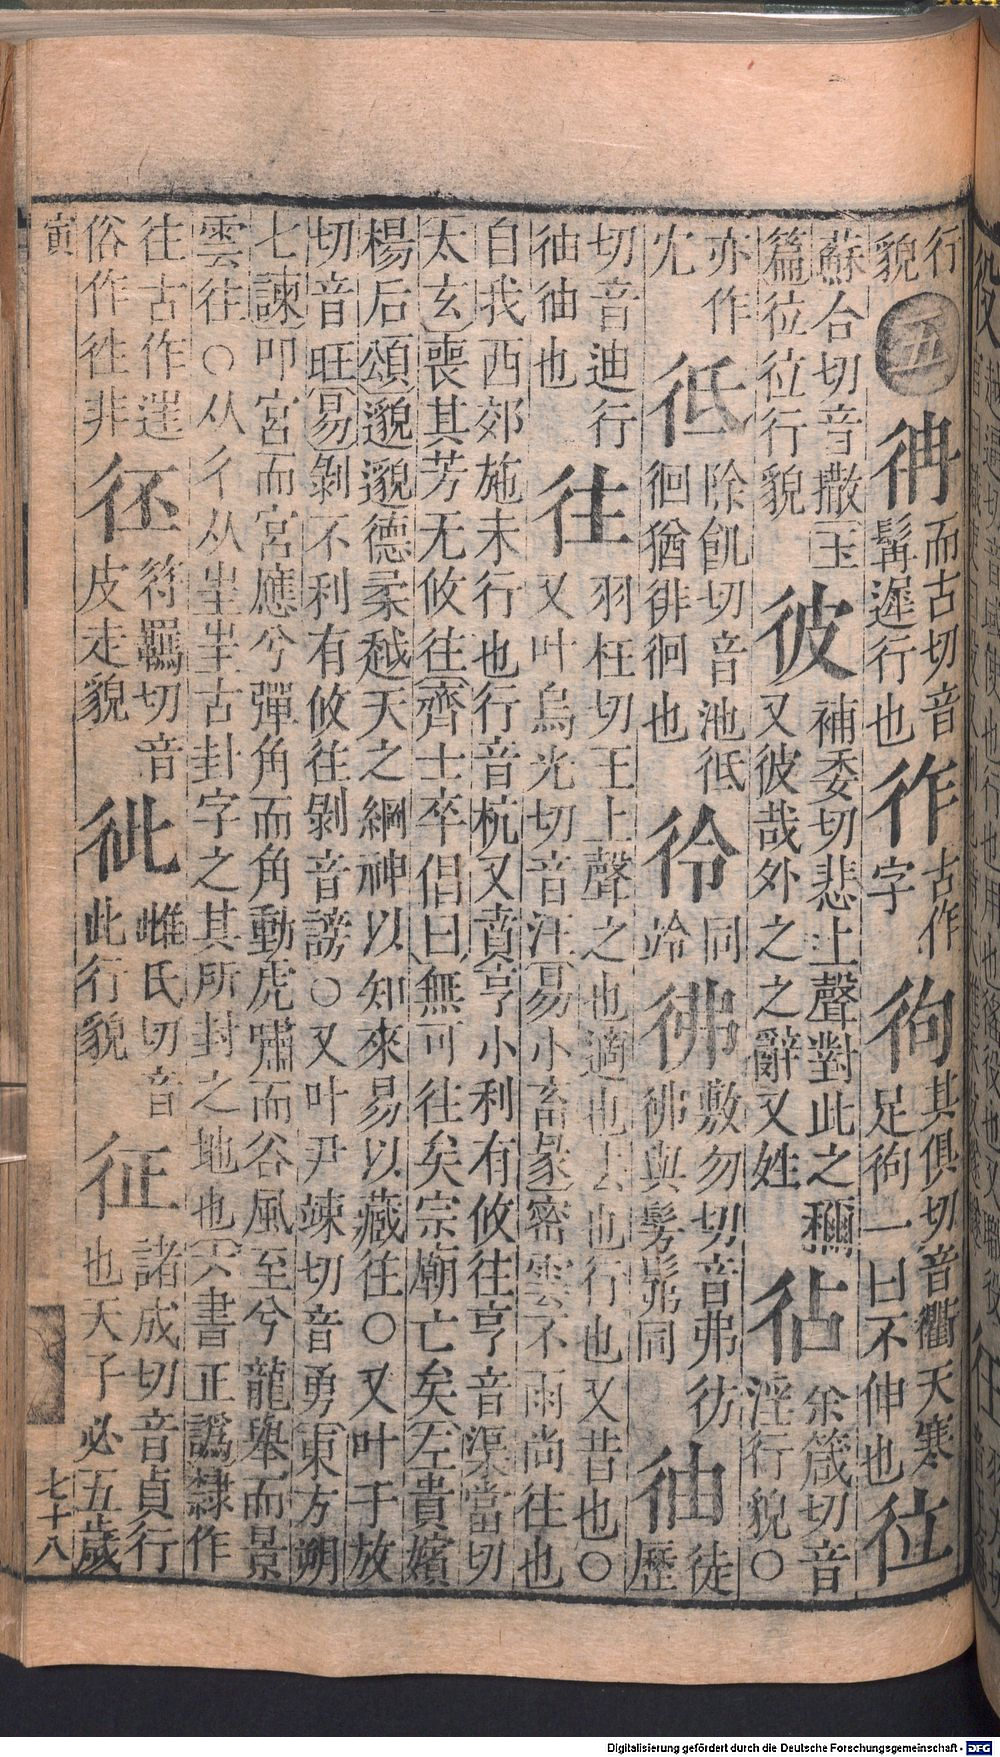 行貌
五
⿰彳冉 而古切音髯遲行也
⿰彳乍 古作字
⿰彳句 其俱切音衢天寒足⿰彳句一曰不伸也
⿰彳立 蘇合切音撒玉篇⿰彳立⿰彳立行貌
彼 補委切悲上聲對此之稱又彼哉外之之辭又姓
⿰彳占 余箴切音淫行貌○亦作冘
彽 除飢切音池彽徊猶徘徊也
彾 同竛
彿 敷勿切音弗彷彿與髣髴同
⿰彳由 徒歷切音迪行⿰彳由⿰彳由也
往 羽枉切王上聲之也適也去也行也又昔也○
又叶烏光切音汪易小畜彖密雲不雨尚往也
自我西郊施未行也行音杭又賁亨小利有攸往亨音渠當切
太玄喪其芳无攸往齊士卒倡曰無可往矣宗廟亡矣左貴嬪
楊后頌邈邈德柔越天之綱神以知來易以藏往○又叶于放
切音旺易剝不利有攸往剝音謗○又叶尹竦切音勇東方朔
七諫叩宮而宮應兮彈角而角動虎嘯而谷風至兮龍舉而景
雲往○从彳从㞷㞷古封字之其所封之地也六書正譌隸作
往古作𨓹俗作徃非
⿰彳丕 符羈切音皮走貌
⿰彳此 雌氏切音此行貌
征 諸成切音貞行也天子必五歲
寅
七十八
Digitalisierung gefördert durch die Deutsche Forschungsgemeinschaft - DFG